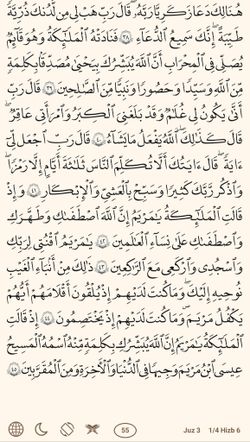 هُنَالِكَ دَعَا زَكَرِيَّا رَبَّهُۥ ۖ قَالَ رَبِّ هَبْ لِى مِن لَّدُنكَ ذُرِّيَّةً
طَيِّبَةً ۖ إِنَّكَ سَمِيعُ ٱلدُّعَآءِ ٣٨ فَنَادَتْهُ ٱلْمَلَٰٓئِكَةُ وَهُوَ قَآئِمٌ
يُصَلِّى فِى ٱلْمِحْرَابِ أَنَّ ٱللَّهَ يُبَشِّرُكَ بِيَحْيَىٰ مُصَدِّقًۢا بِكَلِمَةٍ
مِّنَ ٱللَّهِ وَسَيِّدًا وَحَصُورًا وَنَبِيًّا مِّنَ ٱلصَّٰلِحِينَ ٣٩ قَالَ رَبِّ
أَنَّىٰ يَكُونُ لِى غُلَٰمٌ وَقَدْ بَلَغَنِىَ ٱلْكِبَرُ وَٱمْرَأَتِى عَاقِرٌ ۖ
قَالَ كَذَٰلِكَ ٱللَّهُ يَفْعَلُ مَا يَشَآءُ ٤٠ قَالَ رَبِّ ٱجْعَل لِّىٓ
ءَايَةً ۖ قَالَ ءَايَتُكَ أَلَّا تُكَلِّمَ ٱلنَّاسَ ثَلَٰثَةَ أَيَّامٍ إِلَّا رَمْزًا ۗ
وَٱذْكُر رَّبَّكَ كَثِيرًا وَسَبِّحْ بِٱلْعَشِىِّ وَٱلْإِبْكَٰرِ ٤١ وَإِذْ
قَالَتِ ٱلْمَلَٰٓئِكَةُ يَٰمَرْيَمُ إِنَّ ٱللَّهَ ٱصْطَفَىٰكِ وَطَهَّرَكِ
وَٱصْطَفَىٰكِ عَلَىٰ نِسَآءِ ٱلْعَٰلَمِينَ ٤٢ يَٰمَرْيَمُ ٱقْنُتِى لِرَبِّكِ
وَٱسْجُدِى وَٱرْكَعِى مَعَ ٱلرَّٰكِعِينَ ٤٣ ذَٰلِكَ مِنْ أَنۢبَآءِ ٱلْغَيْبِ
نُوحِيهِ إِلَيْكَ ۚ وَمَا كُنتَ لَدَيْهِمْ إِذْ يُلْقُونَ أَقْلَٰمَهُمْ أَيُّهُمْ
يَكْفُلُ مَرْيَمَ وَمَا كُنتَ لَدَيْهِمْ إِذْ يَخْتَصِمُونَ ٤٤ إِذْ قَالَتِ
ٱلْمَلَٰٓئِكَةُ يَٰمَرْيَمُ إِنَّ ٱللَّهَ يُبَشِّرُكِ بِكَلِمَةٍ مِّنْهُ ٱسْمُهُ ٱلْمَسِيحُ
عِيسَى ٱبْنُ مَرْيَمَ وَجِيهًا فِى ٱلدُّنْيَا وَٱلْءَاخِرَةِ وَمِنَ ٱلْمُقَرَّبِينَ ٤٥
55 Juz 3 1/4 Hizb 6